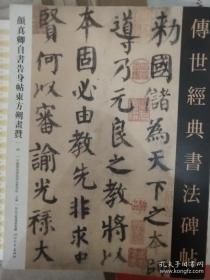 傳世經典書法碑帖
勑國儲為天下之本
導乃元良之教將以
本固必由教先非求
賢何以審諭光祿大
顏真卿自書告身帖東方朔畫贊